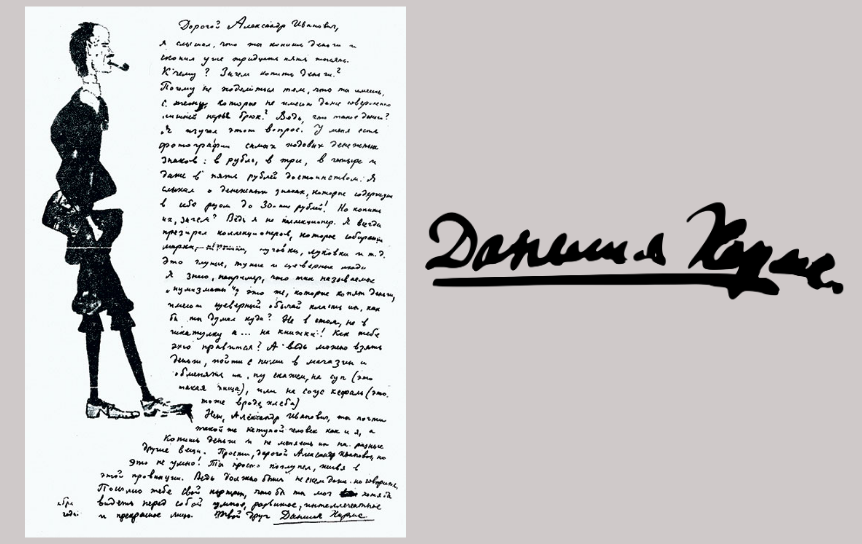 Дорогой Александр Иванович,
я слышал, что ты копишь деньги и
скопил уже тридцать пять тысяч.
К чему? Зачем копить деньги?
Почему не поделиться тем, что ты имеешь,
с теми, которые не имеют даже совершенно
лишней пары брюк? Ведь, что такое деньги?
Я изучал этот вопрос. У меня есть
фотографии самых ходовых денежных
знаков: в рубль, в три, в четыре и
даже в пять рублей достоинством. Я
слыхал о денежных знаках, которые содержат
в себе разом до 30-ти рублей! Но копить
их, зачем? Ведь я не коллекционер. Я всегда
презирал коллекционеров, которые собирают
марки, пуговки, луковки и т.д.
Это глупые, тупые и суеверные люди
Я знаю, например, что так называемые
„нумизматы“, это те, которые копят деньги,
имеют суеверный обычай класть их, как
бы ты думал куда? Не в стол, не в
шкатулку а... на книжки! Как тебе
это нравится? А ведь можно взять
деньги, пойти с ними в магазин и
обменять их, ну скажем, на суп (это
такая пища), или на соус кефаль (это
тоже вроде хлеба)
Нет, Александр Иванович, ты почти
такой же нетупой человек как и я, а
копишь деньги и не меняешь их на разные
другие вещи. Прости, дорогой Александр Иванович, но
это не умно! Ты просто поглупел, живя в
этой провинции. Ведь должно быть не с кем даже поговорить.
Посылаю тебе свой портрет, что бы ты мог хотя бы
видеть перед собой умное, развитое, интеллигентное
и прекрасное лицо. Твой друг Даниил Хармс
Даниил Хармс.